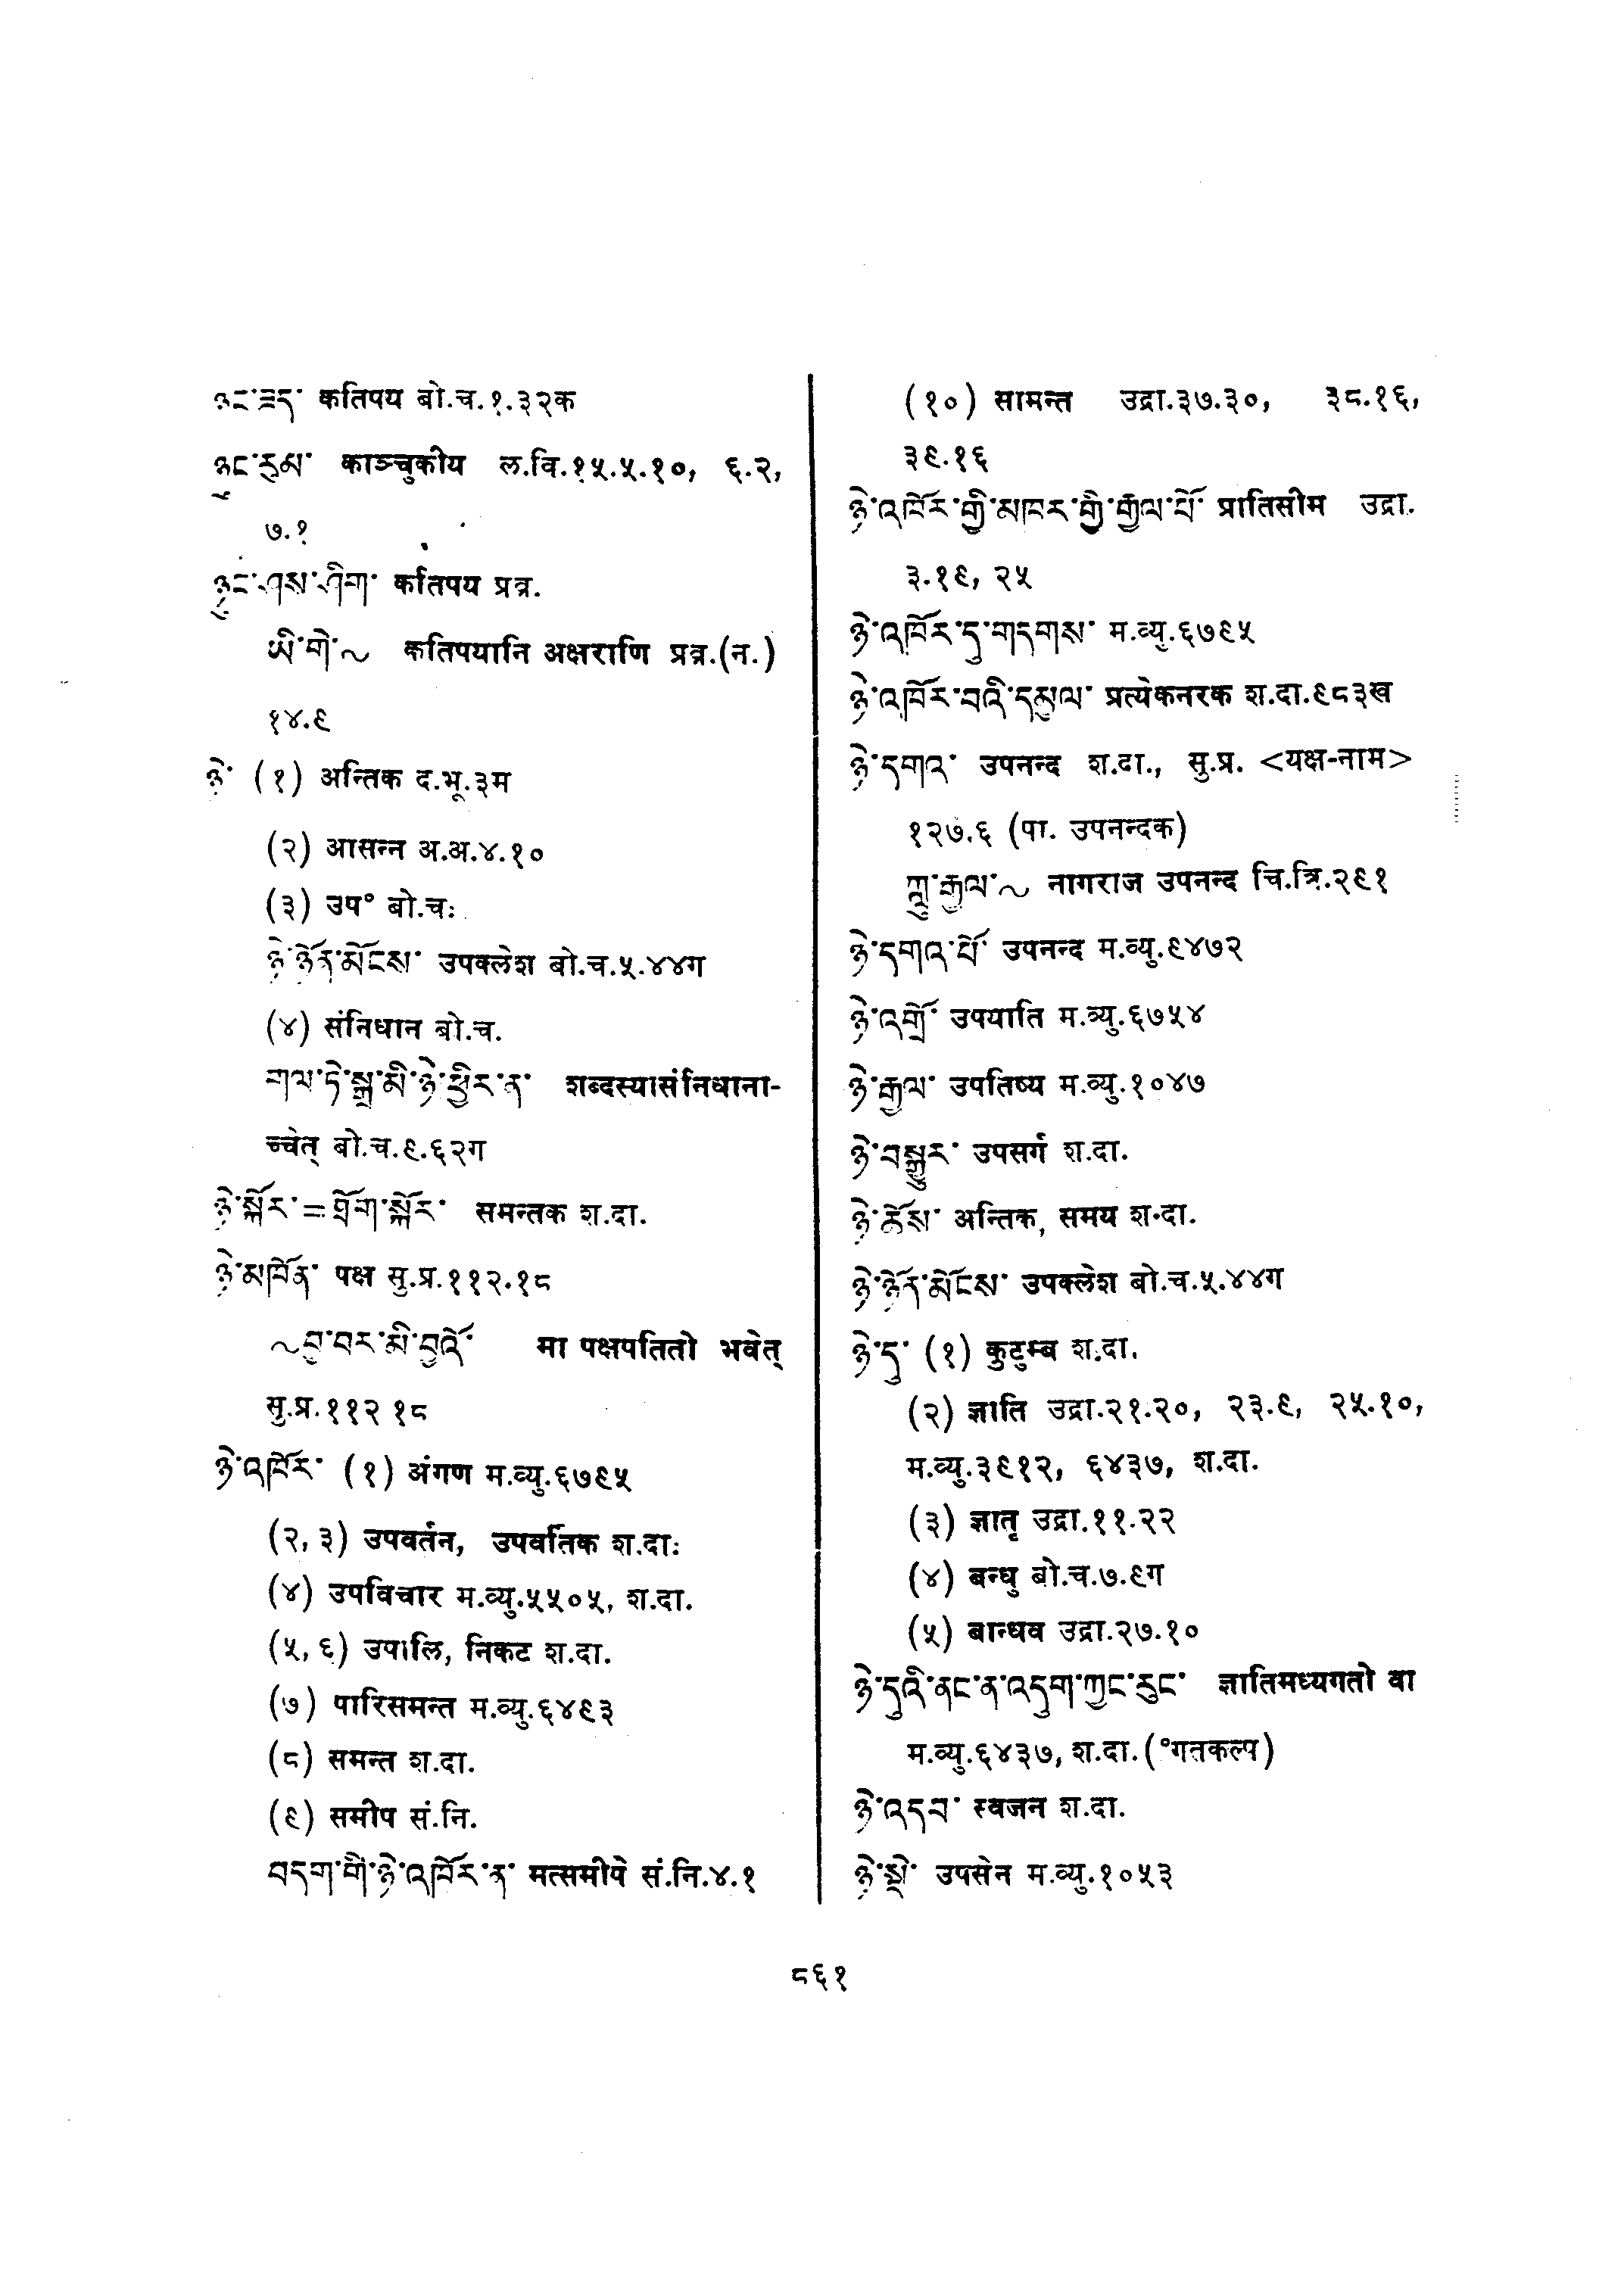 ཉུང་ཟད་ कतिपय बो.च.१.३२क
ཉུང་རུམ་ काञ्चुकीय ल.वि.१५.५.१०, ६.२,
७.१
ཉུང་ཤས་ཤིག་ कतिपय प्रव्र.
ཡི་གེ་~ कतिपयानि अक्षराणि प्रव्र.(न.)
१४.९
ཉེ་ (१) अन्तिक द.भू.३म
(२) आसन्न अ.अ.४.१०
(३) उप° बो.च.
ཉེ་ཉོན་མོངས་ उपक्लेश बो.च.५.४४ग
(४) संनिधान बो.च.
གལ་ཏེ་སྒྲ་མི་ཉེ་ཕྱིར་ན་ शब्दस्यासंनिधाना-
च्चेत् बो.च.९.६२ग
ཉེ་སྐོར་=གྲོག་སྐོར་ समन्तक श.दा.
ཉེ་མཁོན་ पक्ष सु.प्र.११२.१८
~བྱ་བར་མི་བྱའོ་ मा पक्षपतितो भवेत्
सु.प्र.११२ १८
ཉེ་འཁོར་ (१) अंगण म.व्यु.६७९५
(२, ३) उपवर्तन, उपवर्तिक श.दा.
(४) उपविचार म.व्यु.५५०५, श.दा.
(५, ६) उपालि, निकट श.दा.
(७) पारिसमन्त म.व्यु.६४९३
(८) समन्त श.दा.
(९) समीप सं.नि.
བདག་གི་ཉེ་འཁོར་ན་ मत्समीपे सं.नि.४.१
(१०) सामन्त उद्रा.३७.३०, ३८.१६,
३९.१६
ཉེ་འཁོར་གྱི་མཁར་གྱི་རྒྱལ་པོ་ प्रातिसीम उद्रा.
३.१९, २५
ཉེ་འཁོར་དུ་གདགས་ म.व्यु.६७९५
ཉེ་འཁོར་བའི་དམྱལ་ प्रत्येकनरक श.दा.९८३ख
ཉེ་དགའ་ उपनन्द श.दा., सु.प्र. <यक्ष-नाम>
१२७.६ (पा. उपनन्दक)
ཀླུ་རྒྱལ་~ नागराज उपनन्द चि.त्रि.२९१
ཉེ་དགའ་པོ་ उपनन्द म.व्यु.९४७२
ཉེ་འགྲོ་ उपयाति म.व्यु.६७५४
ཉེ་རྒྱལ་ उपतिष्य म.व्यु.१०४७
ཉེ་བསྒྱུར་ उपसर्ग श.दा.
ཉེ་ཆོས་ अन्तिक, समय श.दा.
ཉེ་ཉོན་མོངས་ उपक्लेश बो.च.५.४४ग
ཉེ་དུ་ (१) कुटुम्ब श.दा.
(२) ज्ञाति उद्रा.२१.२०, २३.९, २५.१०,
म.व्यु.३९१२, ६४३७, श.दा.
(३) ज्ञातृ उद्रा.११.२२
(४) बन्धु बो.च.७.९ग
(५) बान्धव उद्रा.२७.१०
ཉེ་དུའི་ནང་ན་འདུག་ཀྱང་རུང་ ज्ञातिमध्यगतो वा
म.व्यु.६४३७, श.दा.(°गतकल्प)
ཉེ་འདབ་ स्वजन श.दा.
ཉེ་སྡེ་ उपसेन म.व्यु.१०५३
८६१